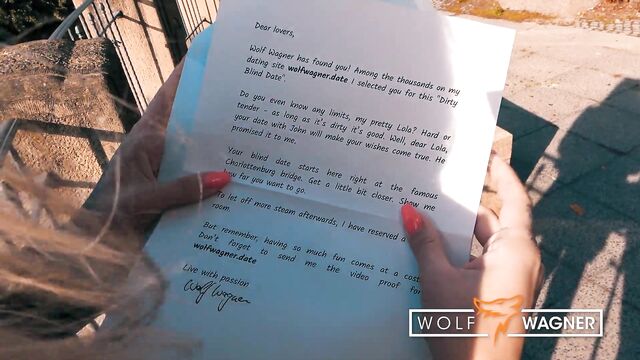 Dear lovers,
Wolf Wagner has found you! Among the thousands on my
dating site wolfwagner.date I selected you for this "Dirty
Blind Date".
Do you even know any limits, my pretty Lola? Hard or
tender - as long as it's dirty it's good. Well, dear Lola,
your date with John will make your wishes come true. He
promised it to me.
Your blind date starts here right at the famous
Charlottenburg bridge. Get a little bit closer. Show me
for you want to go.
To let off more steam afterwards, I have reserved a
room.
But remember, having so much fun comes at a cost
Don't forget to send me the video proof for
wolfwagner.date
Live with passion
Wolf Wagner
WOLF WAGNER